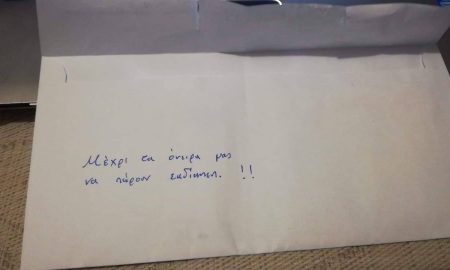 Μέχρι τα όνειρα μας
να πάρουν εκδίκηση. !!